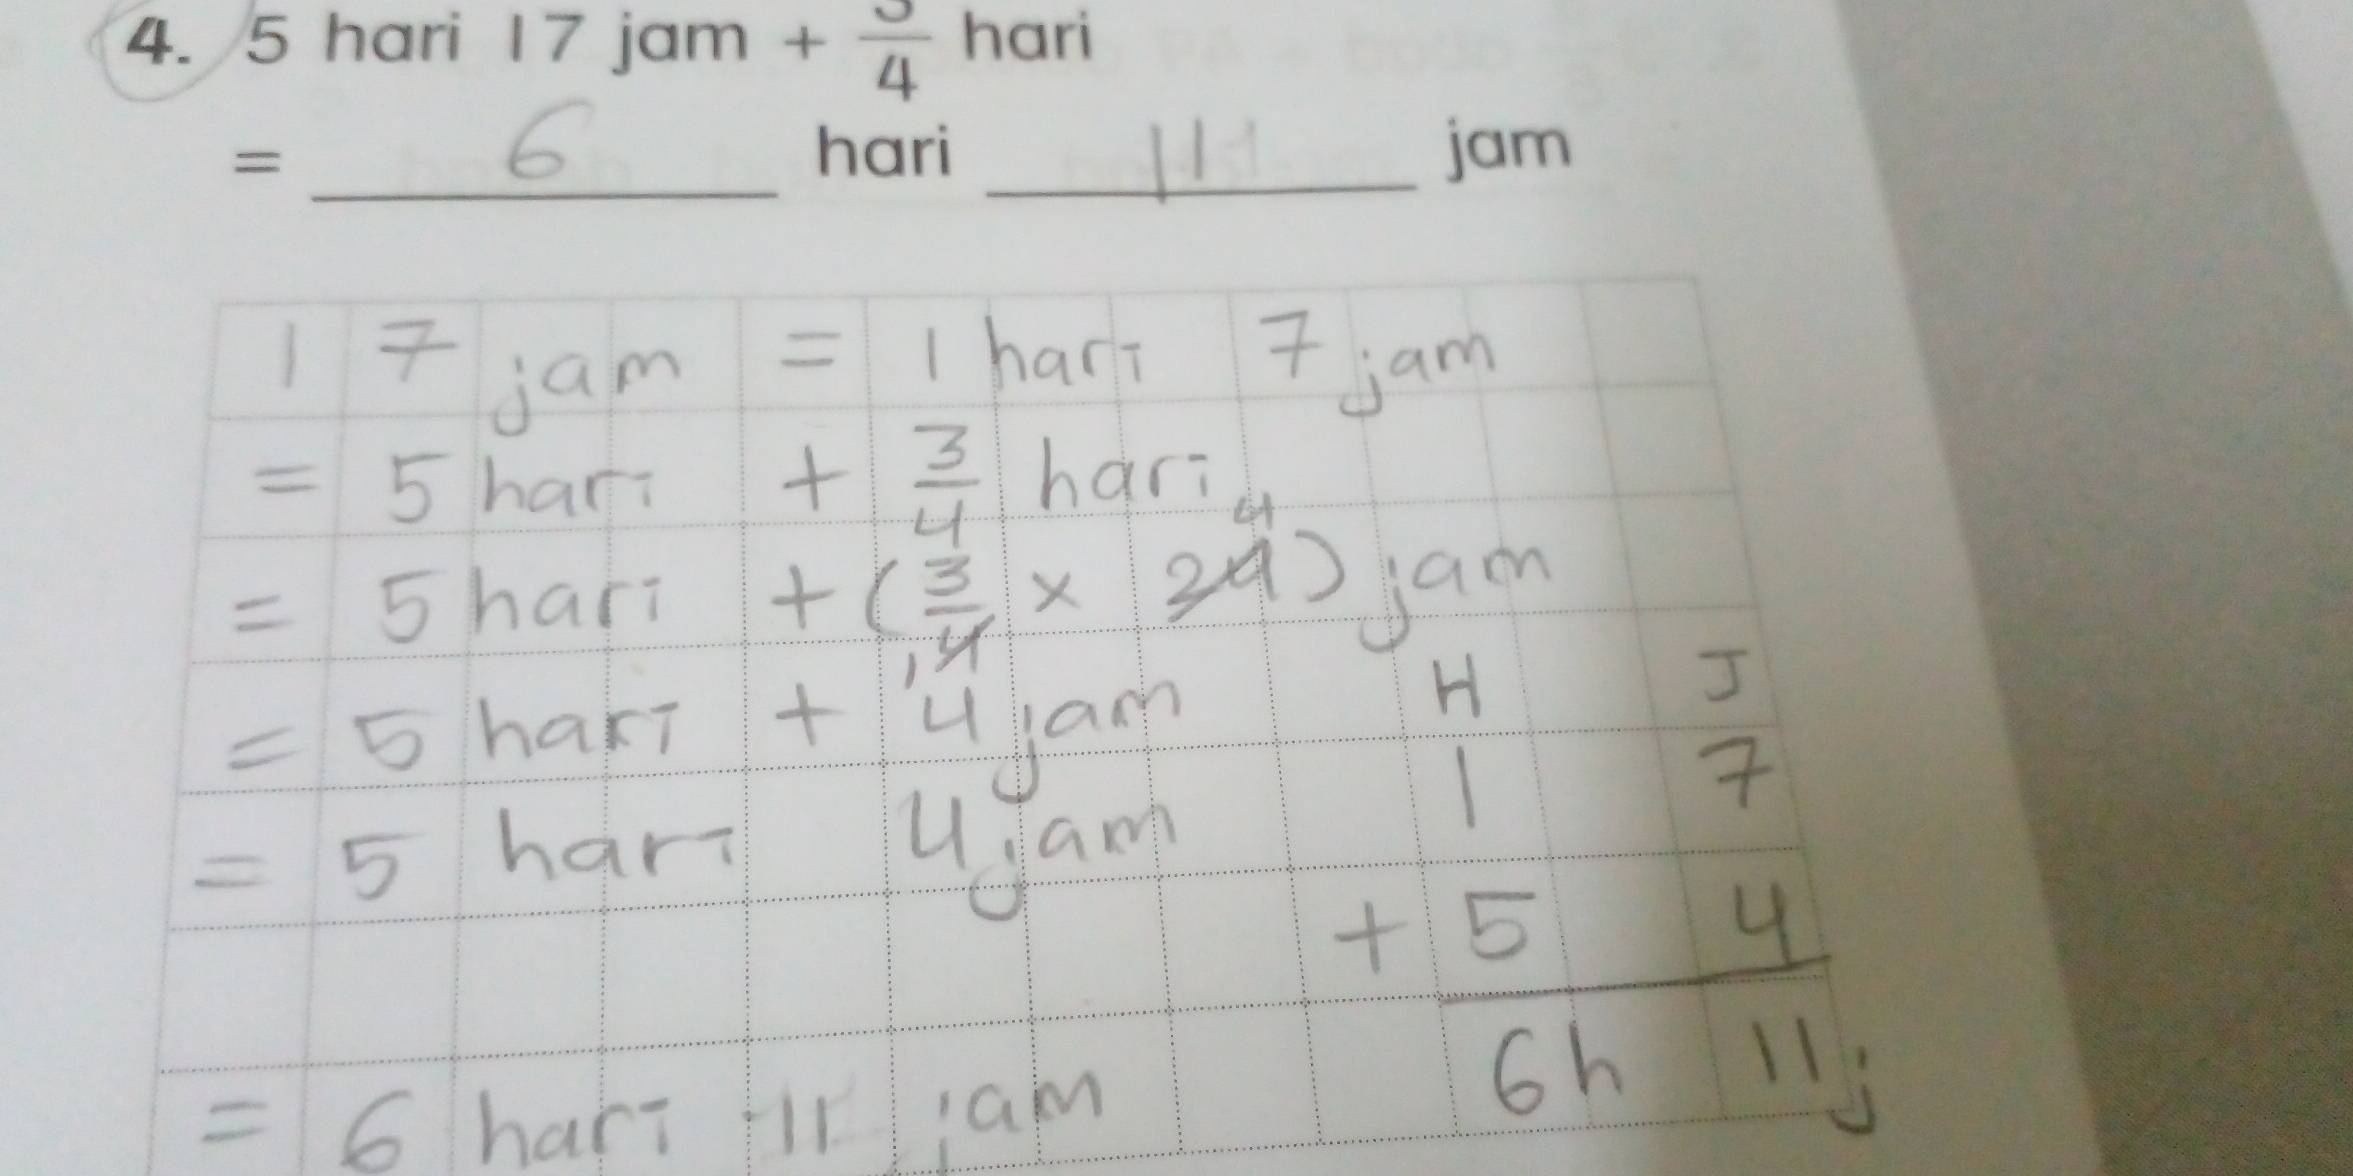 4. 5 hari 17 jam + 3/4 hari
= 6 hari 11 jam
17 jam = 1 hari 7 jam
= 5 hari + 3/4 hari
= 5 hari + (3/4 x 24) jam
4
1
= 5 hari + 4 jam
= 5 hari 4 jam
H J
1 7
+ 5 4
6h 11j
= 6 hari 11 jam